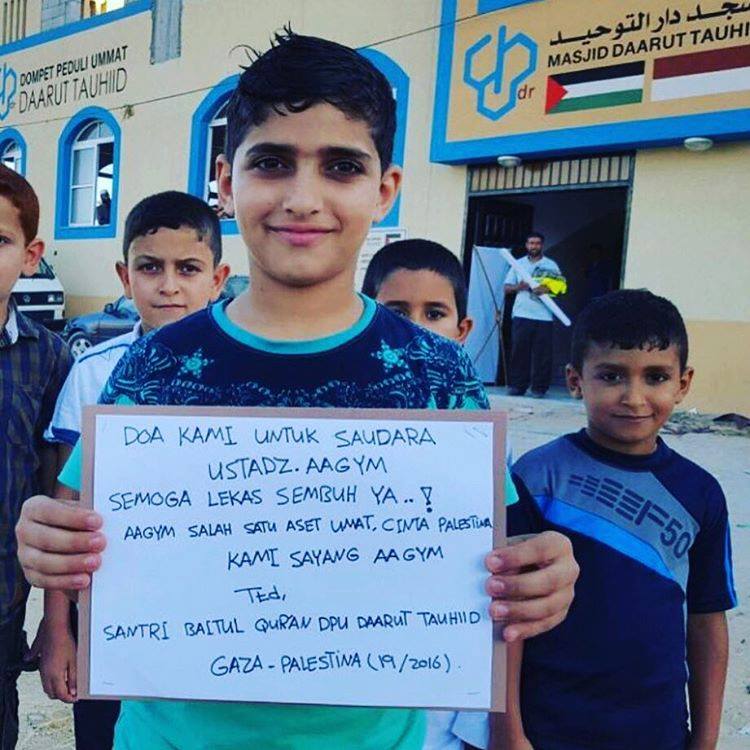 DOMPET PEDULI UMMAT
DAARUT TAUHIID
مسجد دار التوحيد
MASJID DAARUT TAUHI
dr
DOA KAMI UNTUK SAUDARA
USTADZ. AAGYM
SEMOGA LEKAS SEMBUH YA..!
AAGYM SALAH SATU ASET UMAT, CINTA PALESTINA
KAMI SAYANG AAGYM
TEd,
SANTRI BAITUL QUR'AN DPU DAARUT TAUHIID
GAZA - PALESTINA (19/2016).
F50